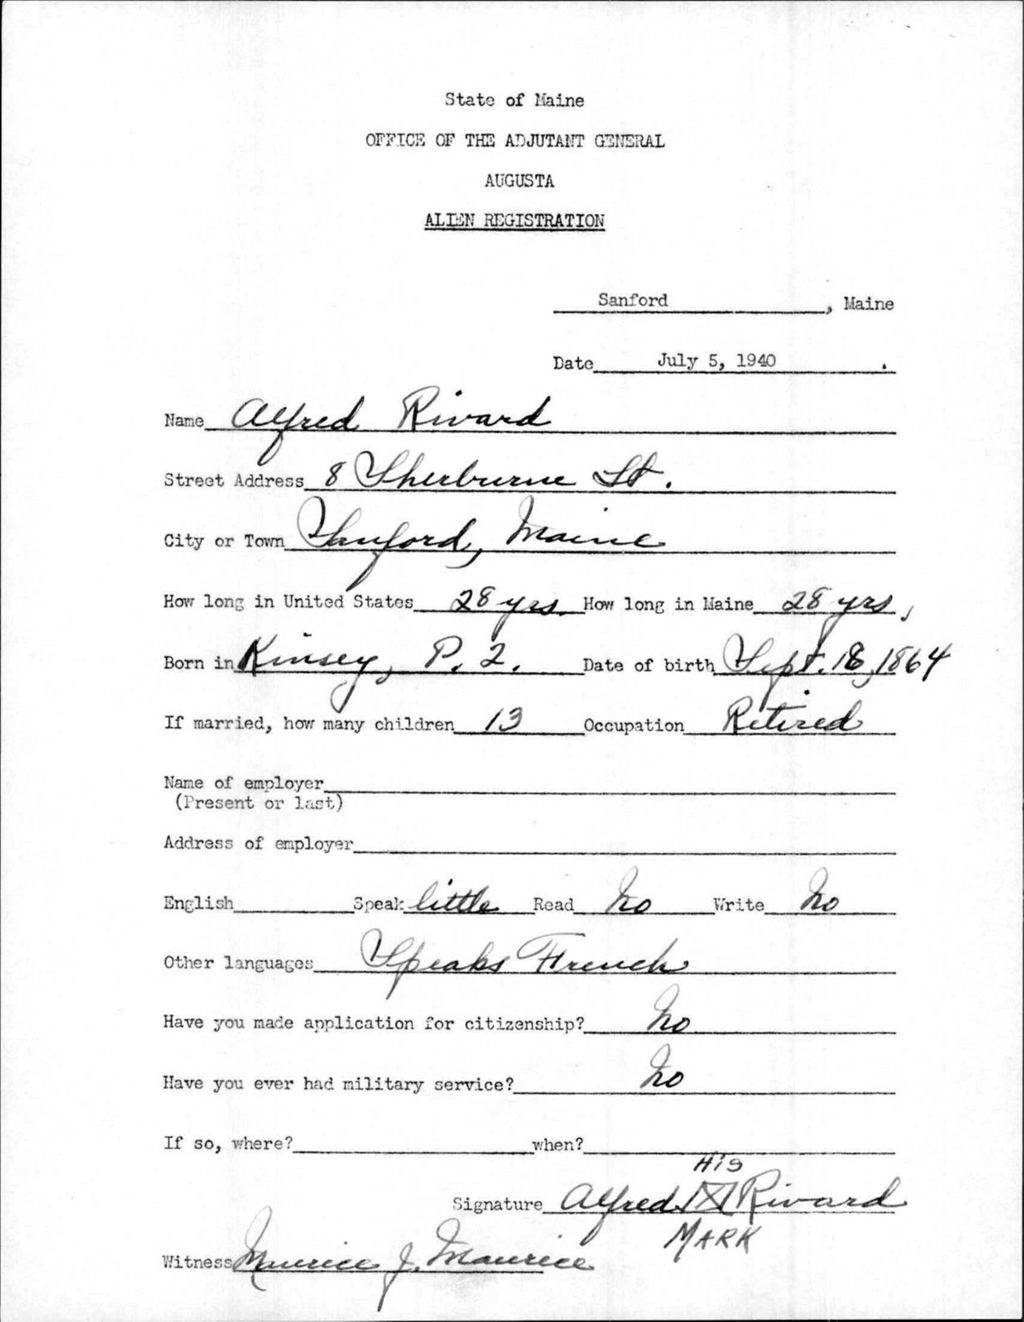 State of Maine
OFFICE OF THE ADJUTANT GENERAL
AUGUSTA
ALIEN REGISTRATION
Sanford, Maine
Date July 5, 1940 .
Name Alfred Rivard
Street Address 8 Sherburne St.
City or Town Sanford, Maine
How long in United States 28 yrs. How long in Maine 28 yrs,
Born in Kinsey, P.Q. Date of birth Sept. 18, 1864
If married, how many children 13 Occupation Retired
Name of employer
(Present or last)
Address of employer
English Speak little Read No Write No
Other languages Speaks French
Have you made application for citizenship? No
Have you ever had military service? No
If so, where? when?
His
Signature Alfred X Rivard
MARK
Witness Maurice J. Maurice